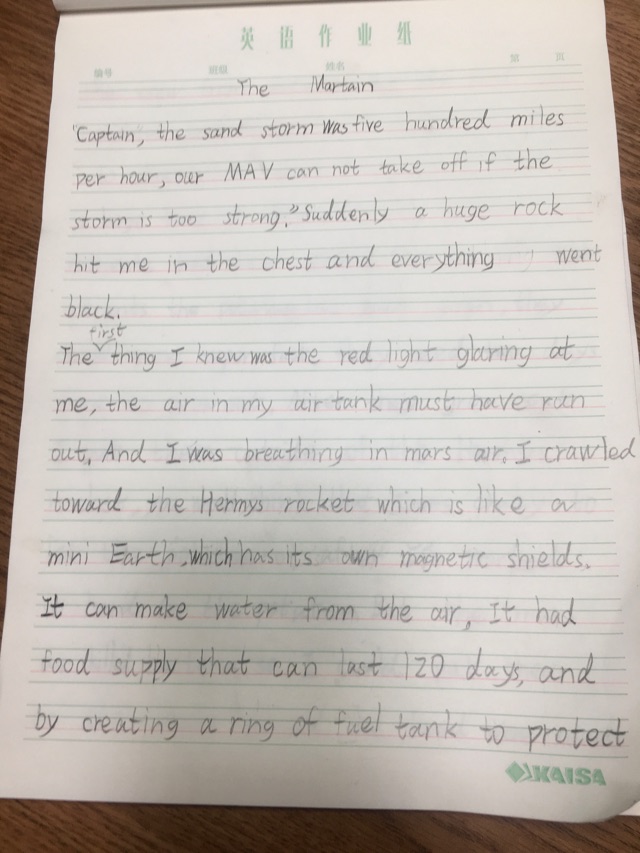 英语作业纸
编号 班级 姓名 第 页
The Martain
"Captain, the sand storm was five hundred miles
per hour, our MAV can not take off if the
storm is too strong." Suddenly a huge rock
hit me in the chest and everything went
black.
first
The thing I knew was the red light glaring at
me, the air in my air tank must have run
out. And I was breathing in mars air. I crawled
toward the Hermys rocket which is like a
mini Earth, which has its own magnetic shields.
It can make water from the air, It had
food supply that can last 120 days, and
by creating a ring of fuel tank to protect
KAISA